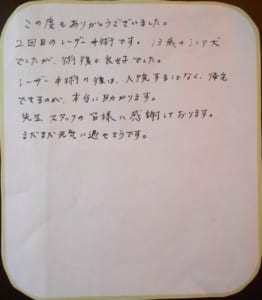 この度もありがとうございました。
2回目のレーザー手術です。13歳のシニア犬
でしたが、術後も良好でした。
レーザー手術の後は、入院することなく、帰宅
できるのが、本当に助かります。
先生、スタッフの皆様に感謝しております。
まだまだ元気に過せそうです。